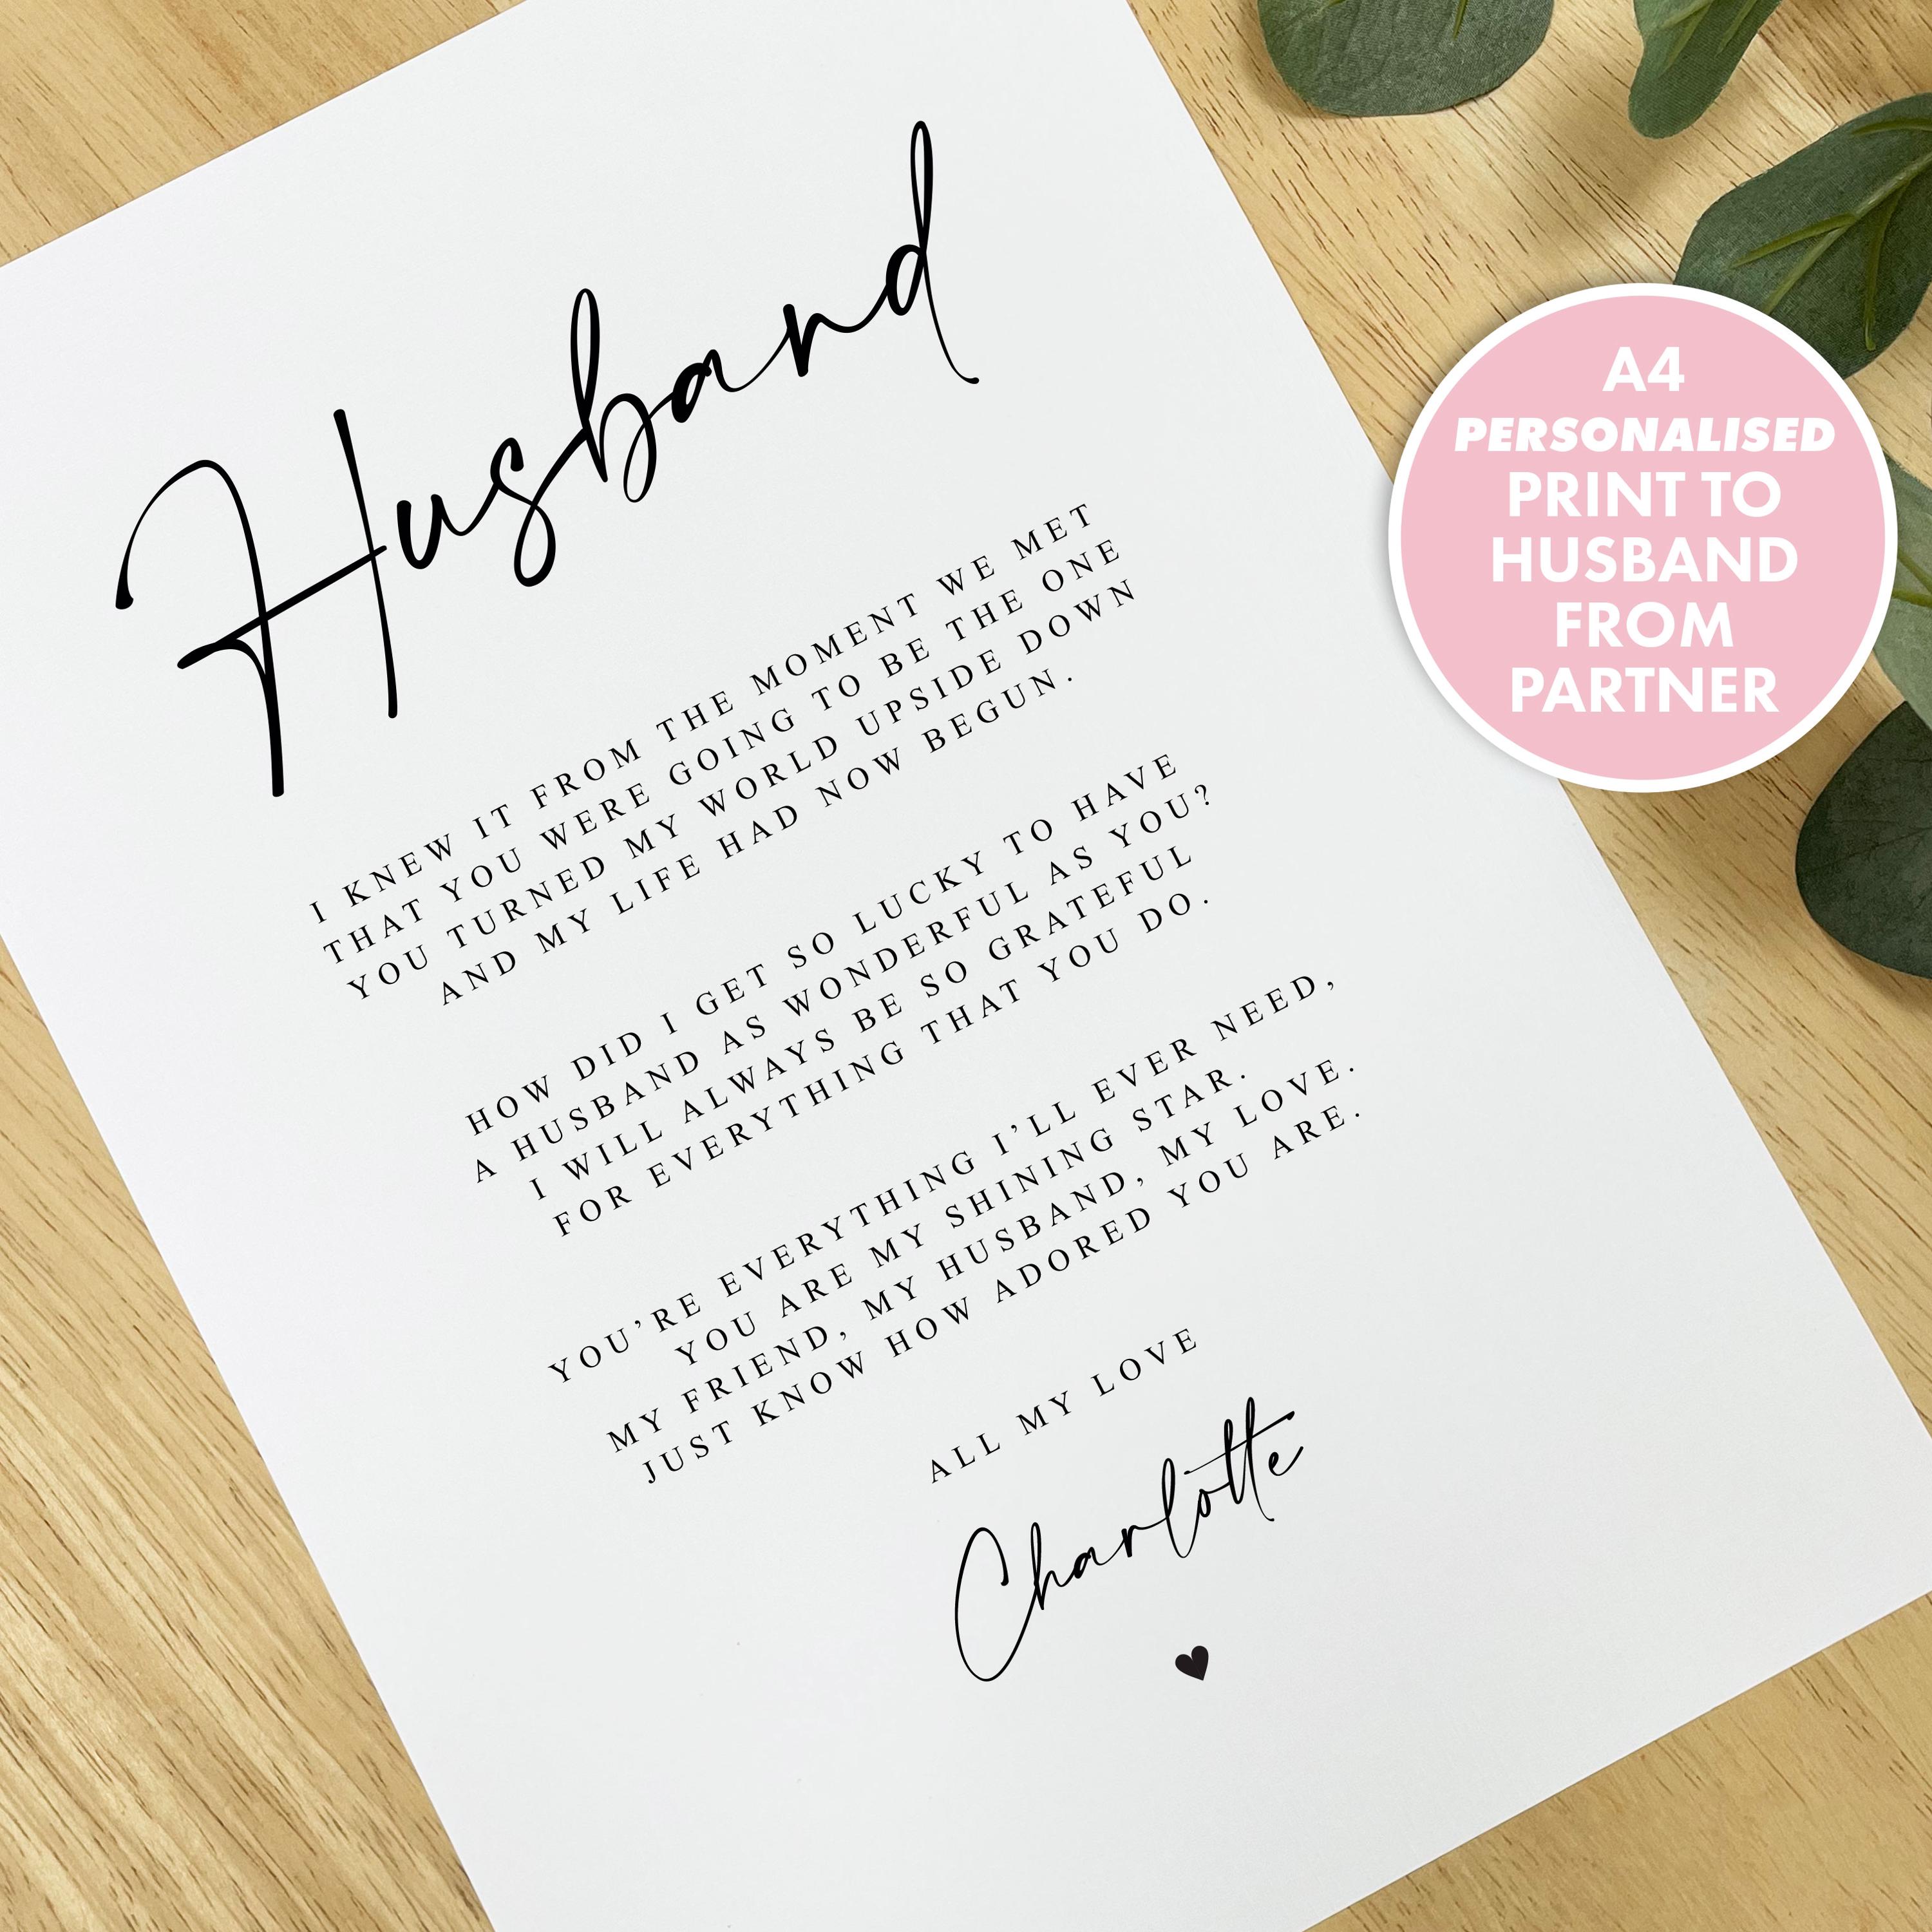 Husband
I KNEW IT FROM THE MOMENT WE MET
THAT YOU WERE GOING TO BE THE ONE
YOU TURNED MY WORLD UPSIDE DOWN
AND MY LIFE HAD NOW BEGUN.
HOW DID I GET SO LUCKY TO HAVE
A HUSBAND AS WONDERFUL AS YOU?
I WILL ALWAYS BE SO GRATEFUL
FOR EVERYTHING THAT YOU DO.
YOU'RE EVERYTHING I'LL EVER NEED,
YOU ARE MY SHINING STAR.
MY FRIEND, MY HUSBAND, MY LOVE.
JUST KNOW HOW ADORED YOU ARE.
ALL MY LOVE
Charlotte
A4
PERSONALISED
PRINT TO
HUSBAND
FROM
PARTNER